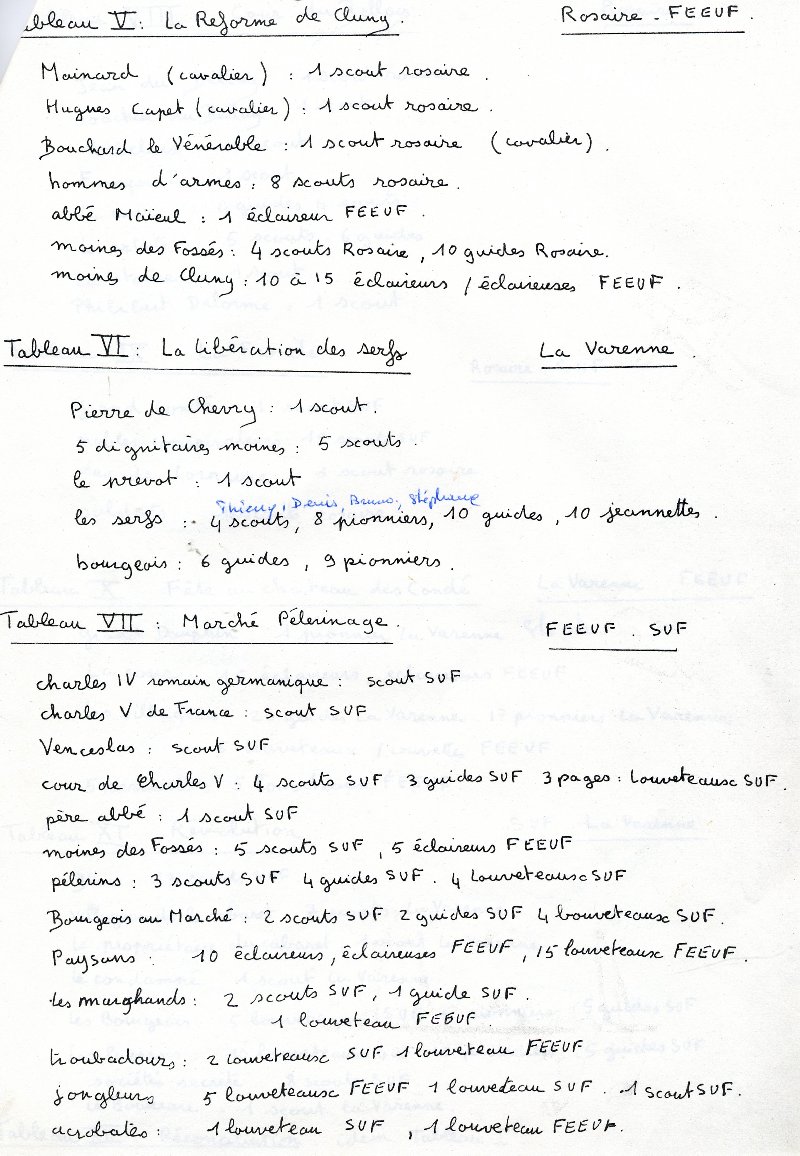 Tableau V : La Réforme de Cluny. Rosaire - FEEUF.
Mainard (cavalier) : 1 scout rosaire.
Hugues Capet (cavalier) : 1 scout rosaire.
Bouchard le Vénérable : 1 scout rosaire (cavalier).
hommes d'armes : 8 scouts rosaire.
abbé Maieul : 1 éclaireur FEEUF.
moines des Fossés : 4 scouts Rosaire, 10 guides Rosaire.
moines de Cluny : 10 à 15 éclaireurs / éclaireuses FEEUF.
Tableau VI : La libération des serfs La Varenne.
Pierre de Chevry : 1 scout.
5 dignitaires moines : 5 scouts.
le prevot : 1 scout
Thierry, Denis, Bruno, Stéphane
les serfs : 4 scouts, 8 pionniers, 10 guides, 10 jeannettes.
bourgeois : 6 guides, 9 pionniers.
Tableau VII : Marché Pélerinage. FEEUF. SUF
charles IV romain germanique : scout SUF
charles V de France : scout SUF
Venceslas : scout SUF
cour de Charles V : 4 scouts SUF 3 guides SUF 3 pages : Louveteaux SUF.
père abbé : 1 scout SUF
moines des Fossés : 5 scouts SUF, 5 éclaireurs FEEUF
pélerins : 3 scouts SUF 4 guides SUF. 4 Louveteaux SUF
Bourgeois au Marché : 2 scouts SUF 2 guides SUF 4 louveteaux SUF.
Paysans : 10 éclaireurs, éclaireuses FEEUF, 15 louveteaux FEEUF.
les marchands : 2 scouts SUF, 1 guide SUF.
1 louveteau FEEUF
troubadours : 2 louveteaux SUF 1 louveteau FEEUF
jongleurs 5 louveteaux FEEUF 1 louveteau SUF. 1 scout SUF.
acrobates : 1 louveteau SUF, 1 louveteau FEEUF.